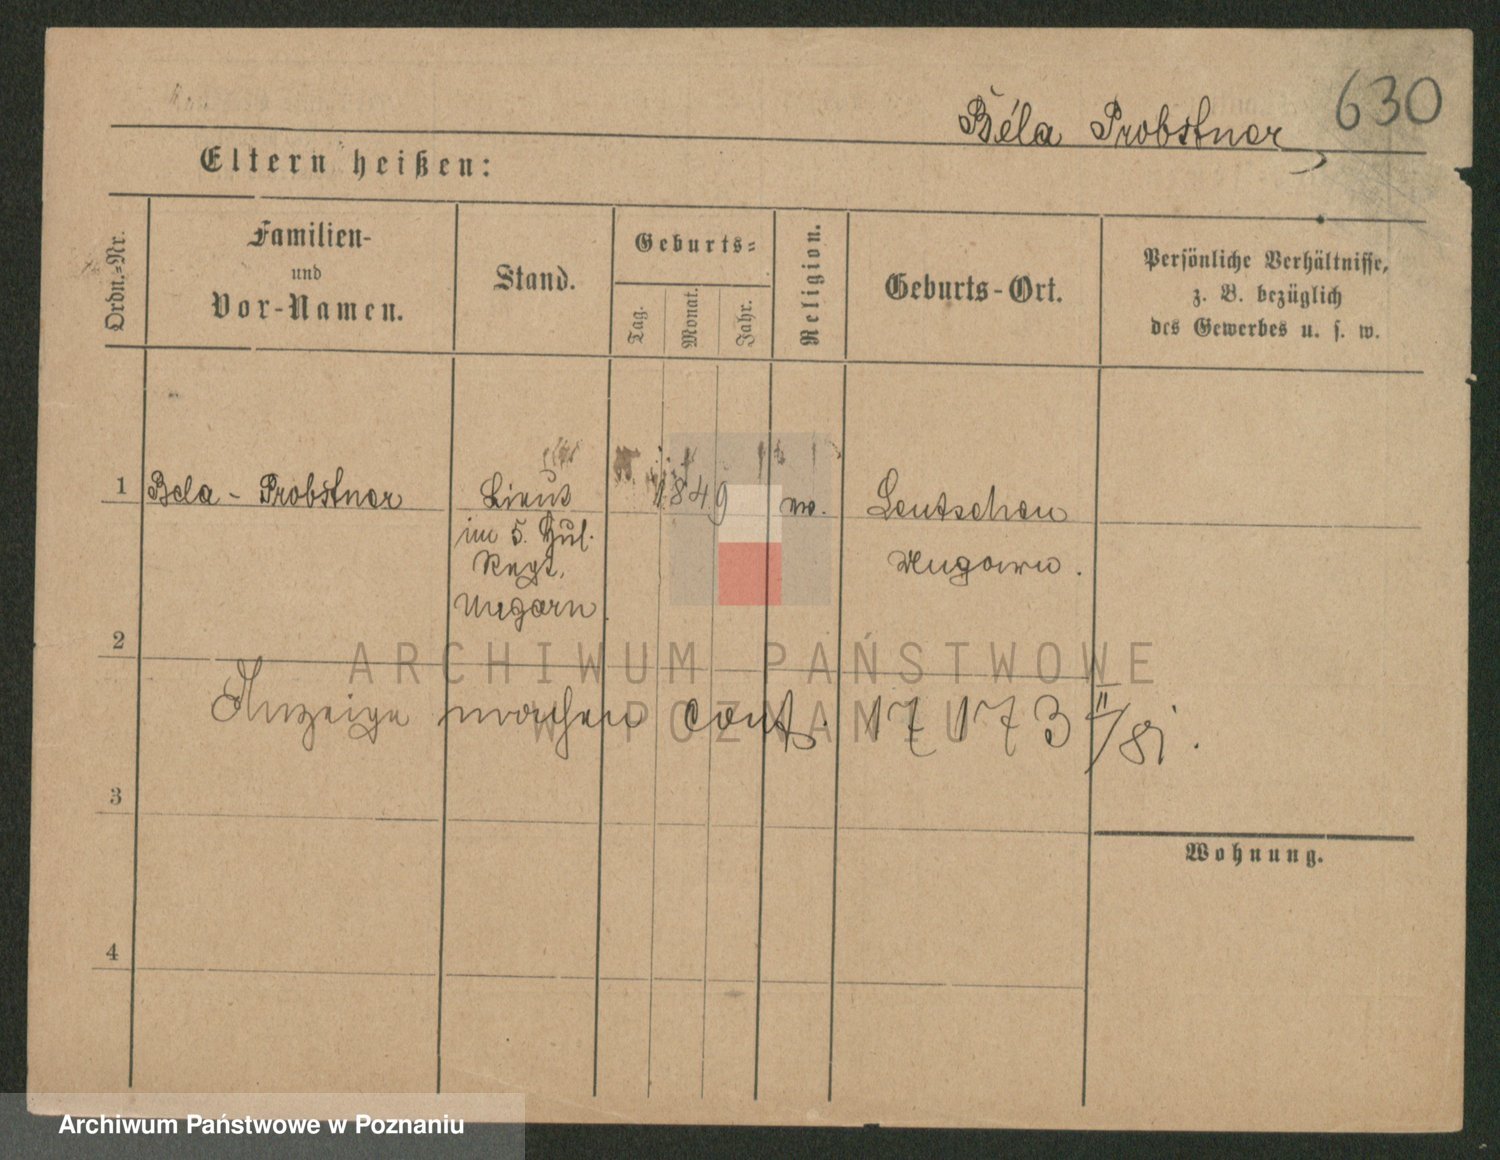 630
Béla Probstner
Eltern heißen:
Ordn.-Nr.
Familien-
und
Vor-Namen.
Stand.
Geburts-
Tag.
Monat.
Jahr.
Religion.
Geburts-Ort.
Persönliche Verhältnisse,
z. B. bezüglich
des Gewerbes u. s. w.
1 Bela - Probstner Lieut 1849 Leutschau
im 5. Hus.
Regt. Ungarn.
Ungarn
2
ARCHIWUM PAŃSTWOWE
W POZNANIU
Anzeige machen cont. 17173 II/81.
3
Wohnung.
4
Archiwum Państwowe w Poznaniu